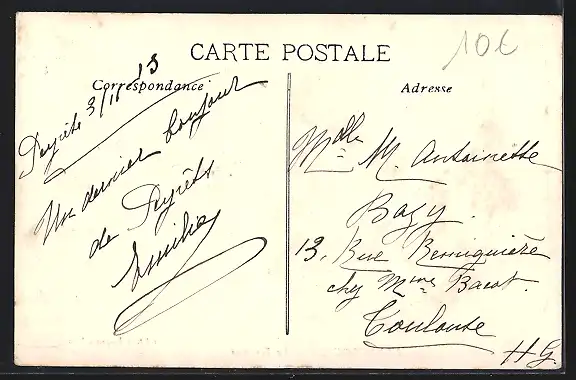 CARTE POSTALE
10€
Correspondance
Adresse
Peyrêts 3/11 13
Un dernier bonjour
de Peyrêts
Emilie
Melle M. Antoinette
Bagy.
13, Rue
chez Mme Bacot.
Toulouse
H G.